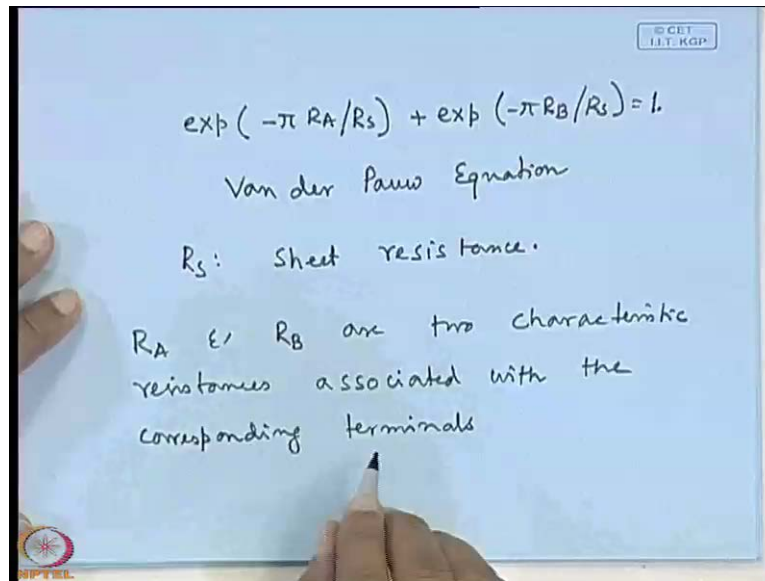 © CET
I.I.T. KGP
exp ( -π RA/RS) + exp (-π RB/RS) = 1.
Van der Pauw Equation
RS: Sheet resistance.
RA & RB are two characteristic
resistances associated with the
corresponding terminals
NPTEL